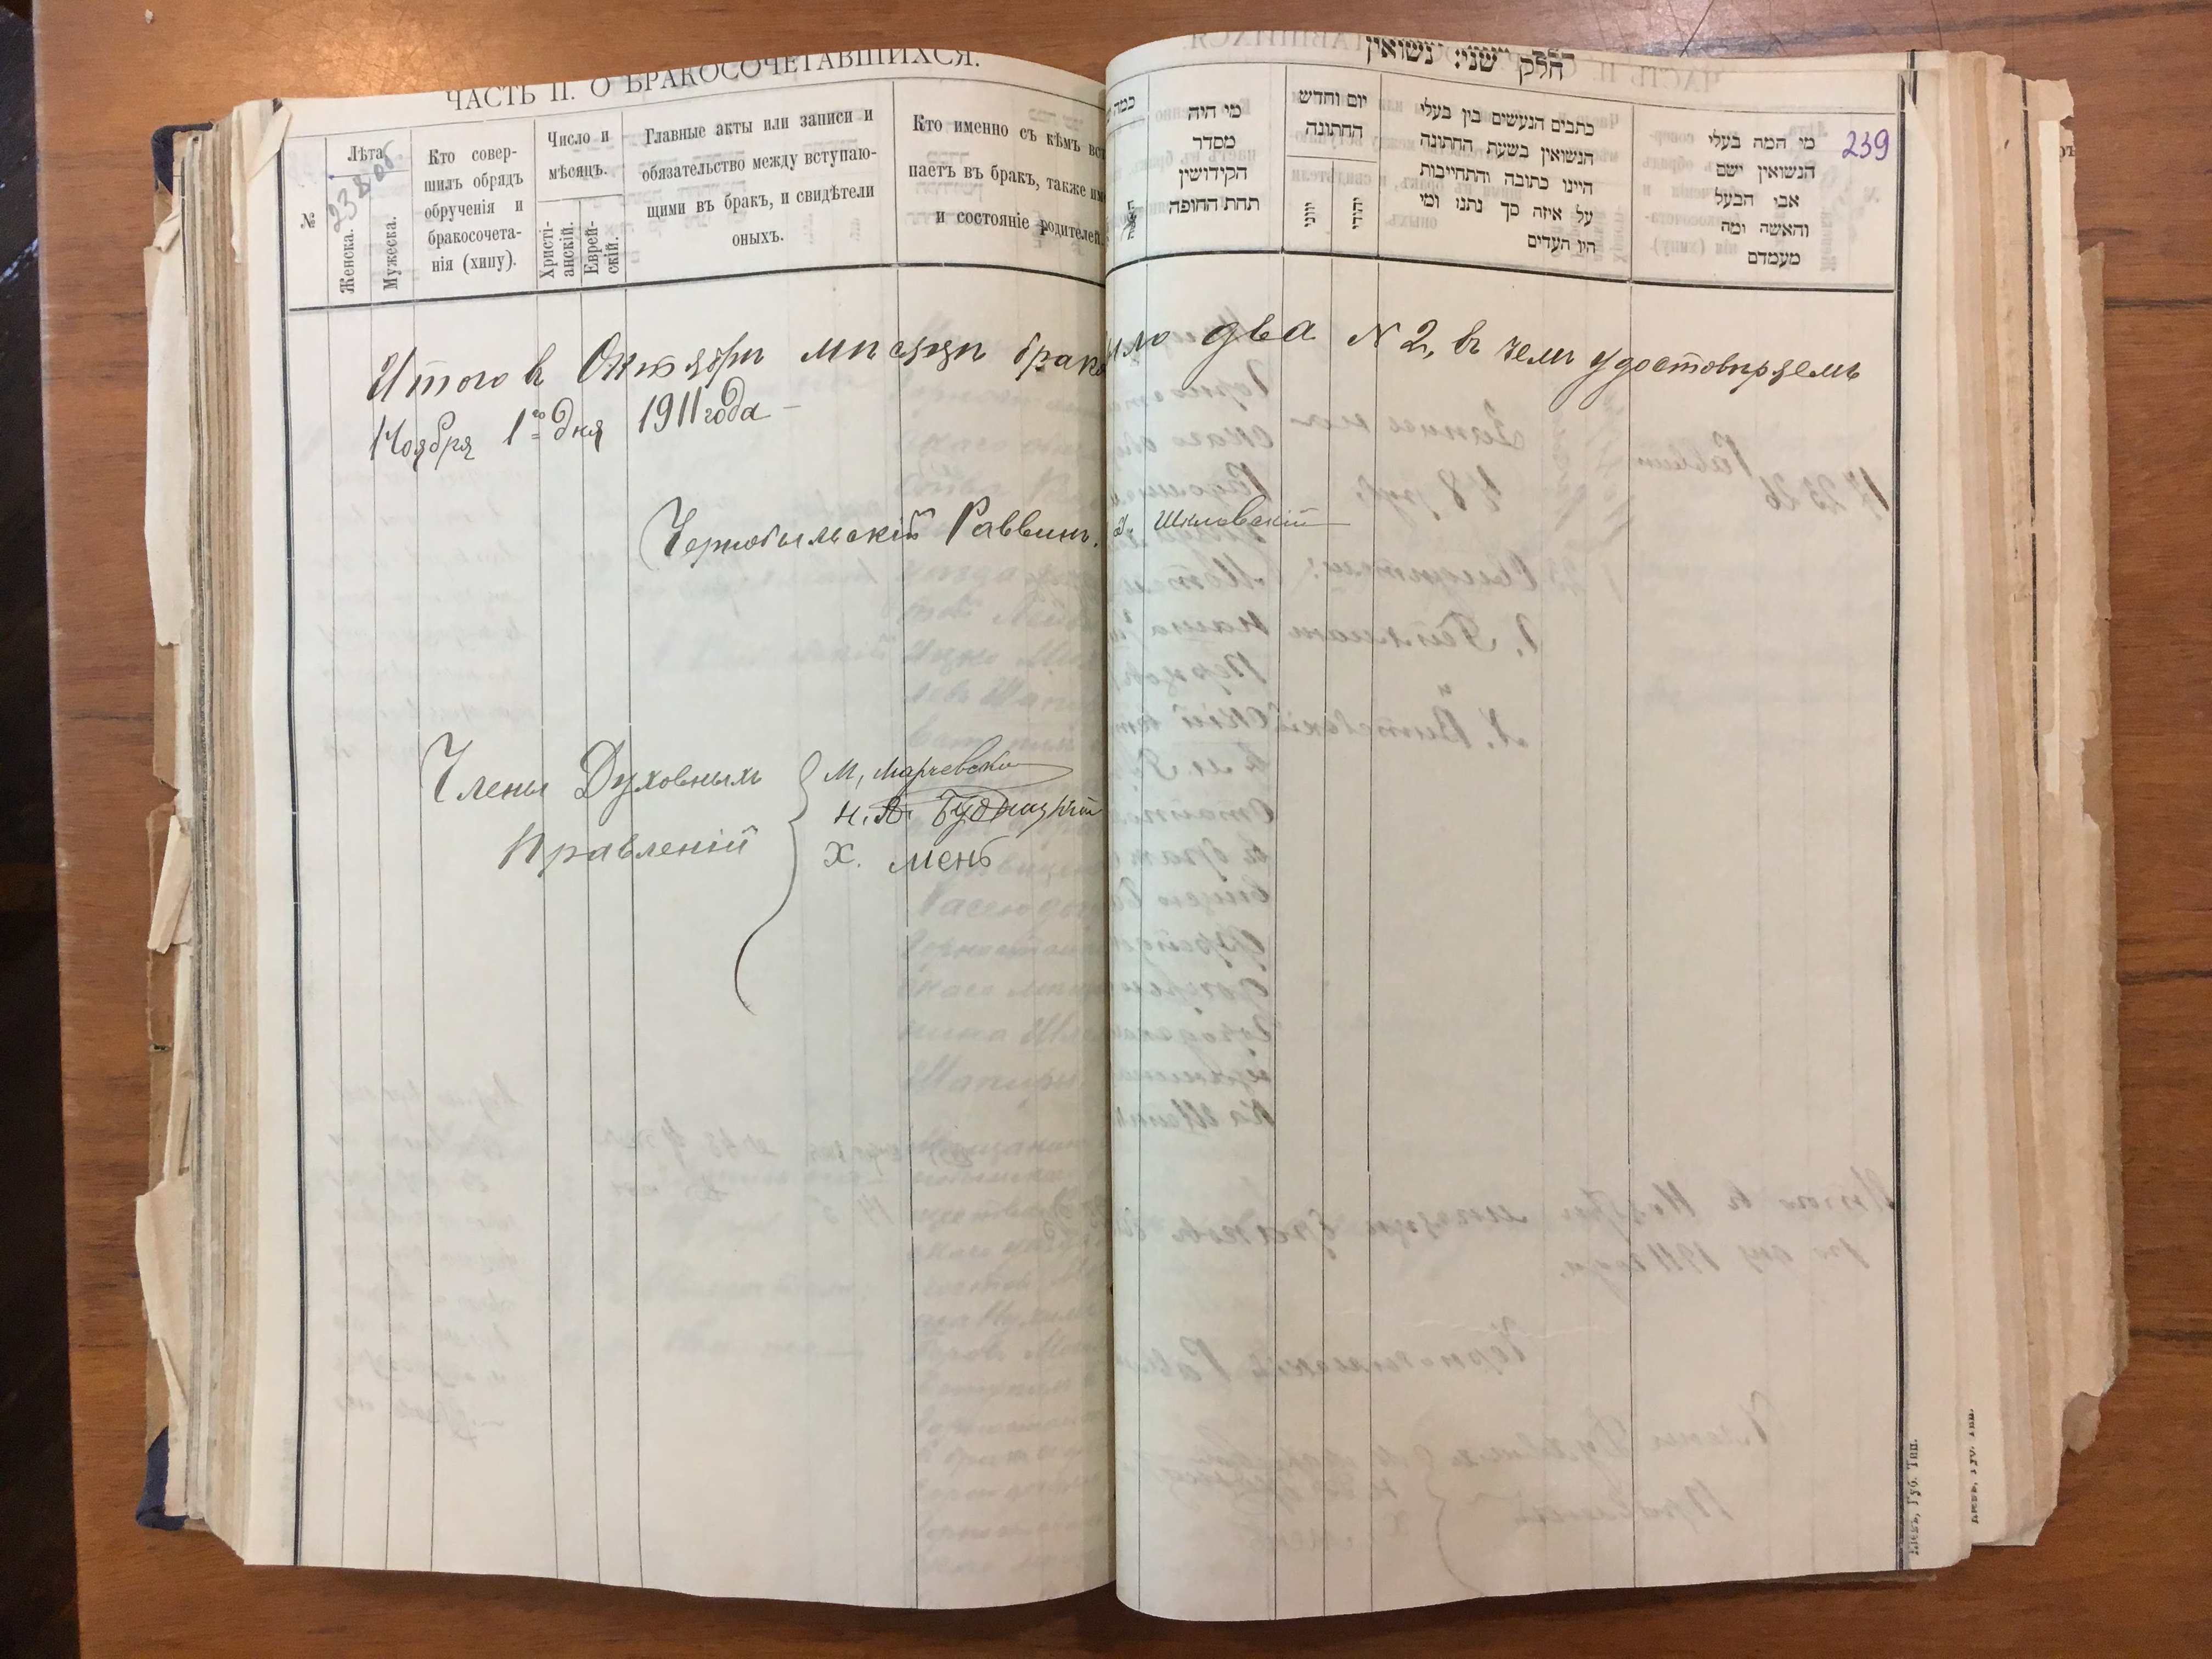 ЧАСТЬ II. О БРАКОСОЧЕТАВШИХСЯ.
№
Лѣта
Женска.
Мужеска.
Кто совер-
шилъ обрядъ
обрученія и
бракосочета-
нія (хипу).
Число и
мѣсяцъ.
Христі-
анскій.
Еврей-
скій.
Главные акты или записи и
обязательство между вступаю-
щими въ бракъ, и свидѣтели
оныхъ.
Кто именно съ кѣмъ вст
паетъ въ бракъ, также им
и состояніе родителей.
238 об.
חלק שני: נשואין
כמה
מי היה
מסדר
הקידושין
תחת החופה
יום וחדש
החתונה
יווני
יהודי
כתבים הנעשים בין בעלי
הנשואין בשעת החתונה
היינו כתובה והתחייבות
על איזה סך נתנו ומי
היו העדים
מי המה בעלי
הנשואין ושם
אבי הבעל
והאשה ומה
מעמדם
239
Итого в Октябрѣ мѣсяцѣ брако ыло два № 2, въ чемъ удостовѣряемъ
Ноября 1го дня 1911 года
Чернобыльскій Раввинъ. Шкловскій
Члены Духовныхъ
Правленій
М. Марчевски
Н. Будницкій
Х. Менъ
Кіевъ, Губ. Тип.